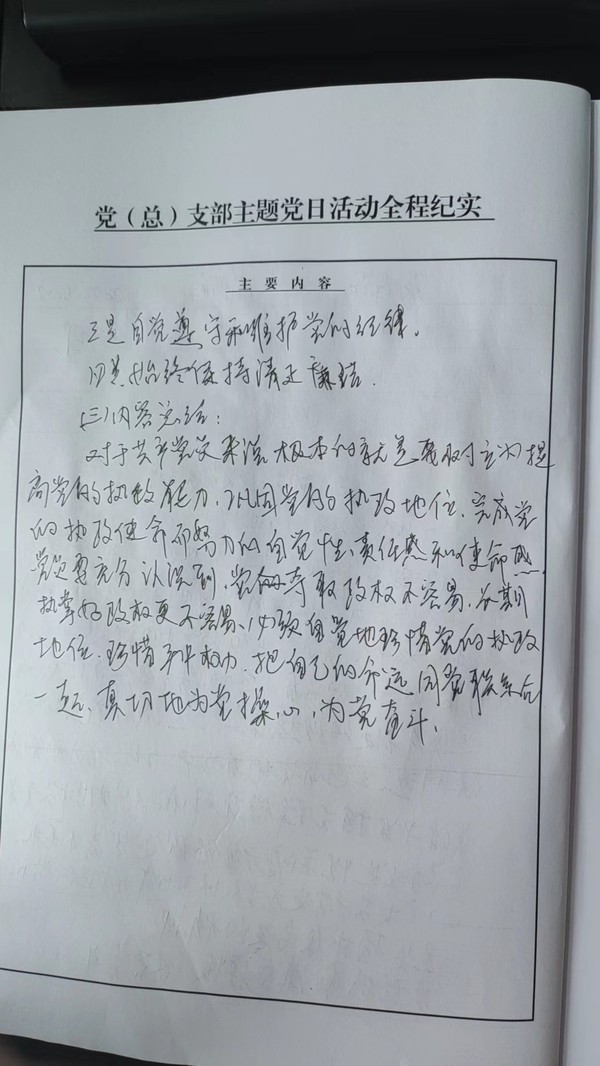 党（总）支部主题党日活动全程纪实
主要内容
三是自觉遵守和维护党的纪律。
四是始终保持清正廉洁.
(三)内容总结：
对于共产党员来说,根本的就是要时主为提
高党的执政能力、巩固党的执政地位、完成党
的执政使命而努力的自觉性、责任感和使命感,
党员要充分认识到,党的夺取政权不容易,
执掌好政权更不容易、必须自觉地珍惜党的执政
地位、珍惜手中权力,把自己的命运同党联系在
一起、真切地为党操心,为党奋斗.